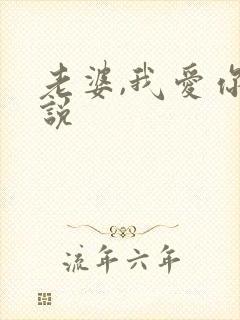 老婆,我愛你
說
流年六年